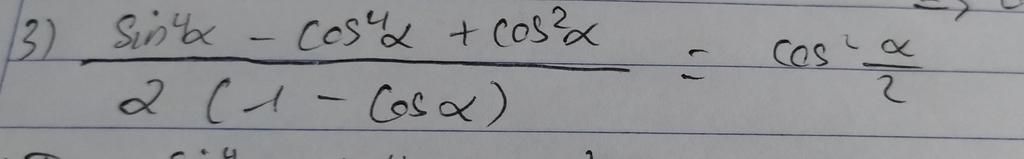 3) (sin⁴α - cos⁴α + cos²α) / (2 (1 - cosα)) = cos² α/2